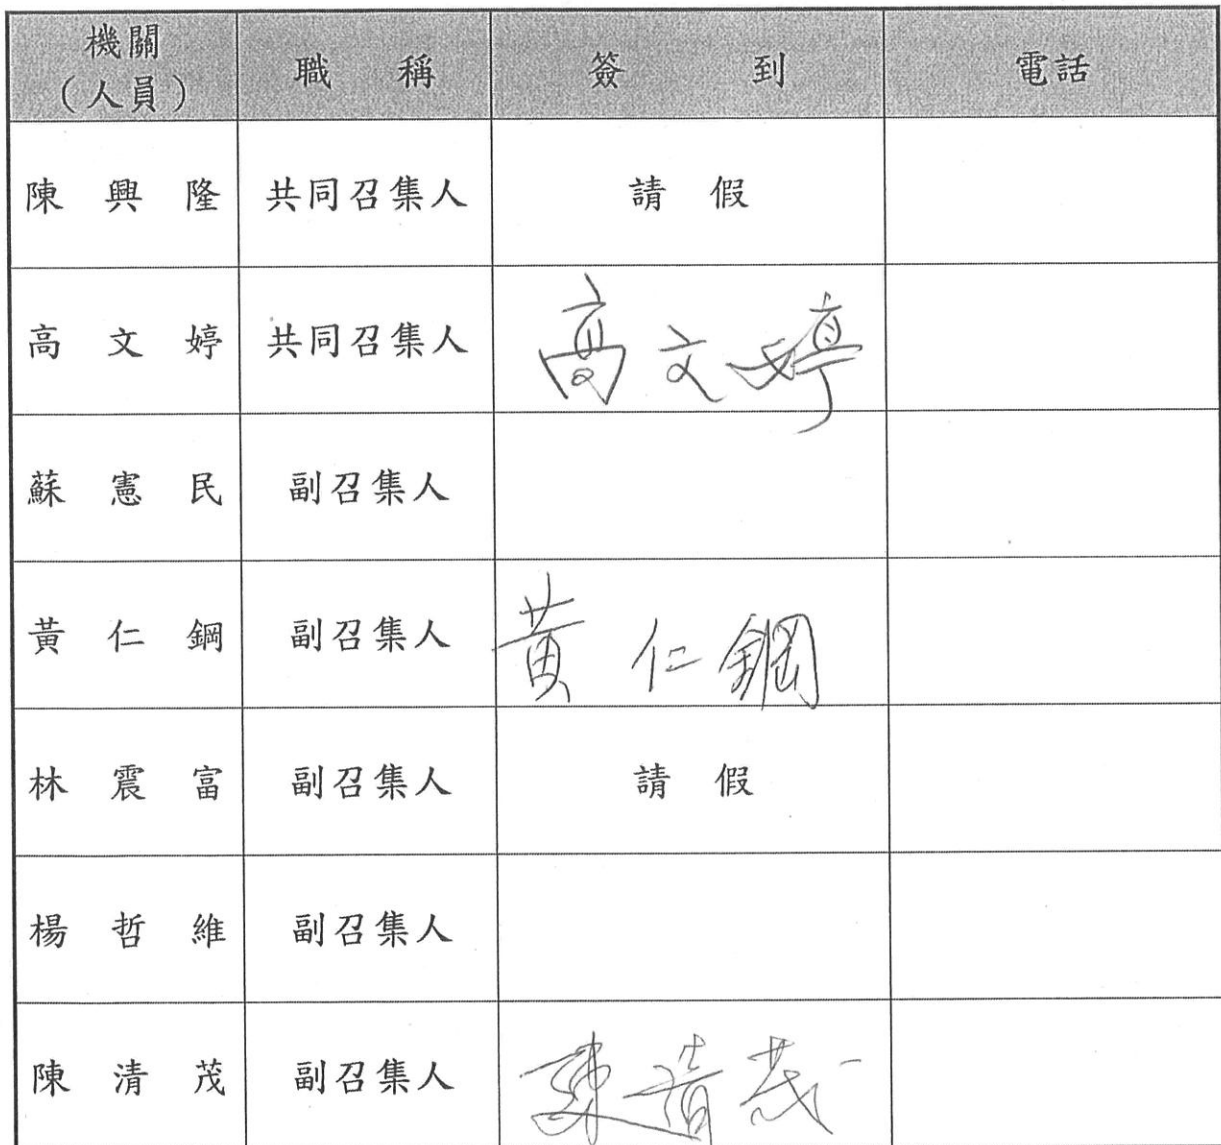 機關
（人員） 職稱 簽到 電話
陳興隆 共同召集人 請假
高文婷 共同召集人 高文婷
蘇憲民 副召集人
黃仁鋼 副召集人 黃仁鋼
林震富 副召集人 請假
楊哲維 副召集人
陳清茂 副召集人 陳清茂